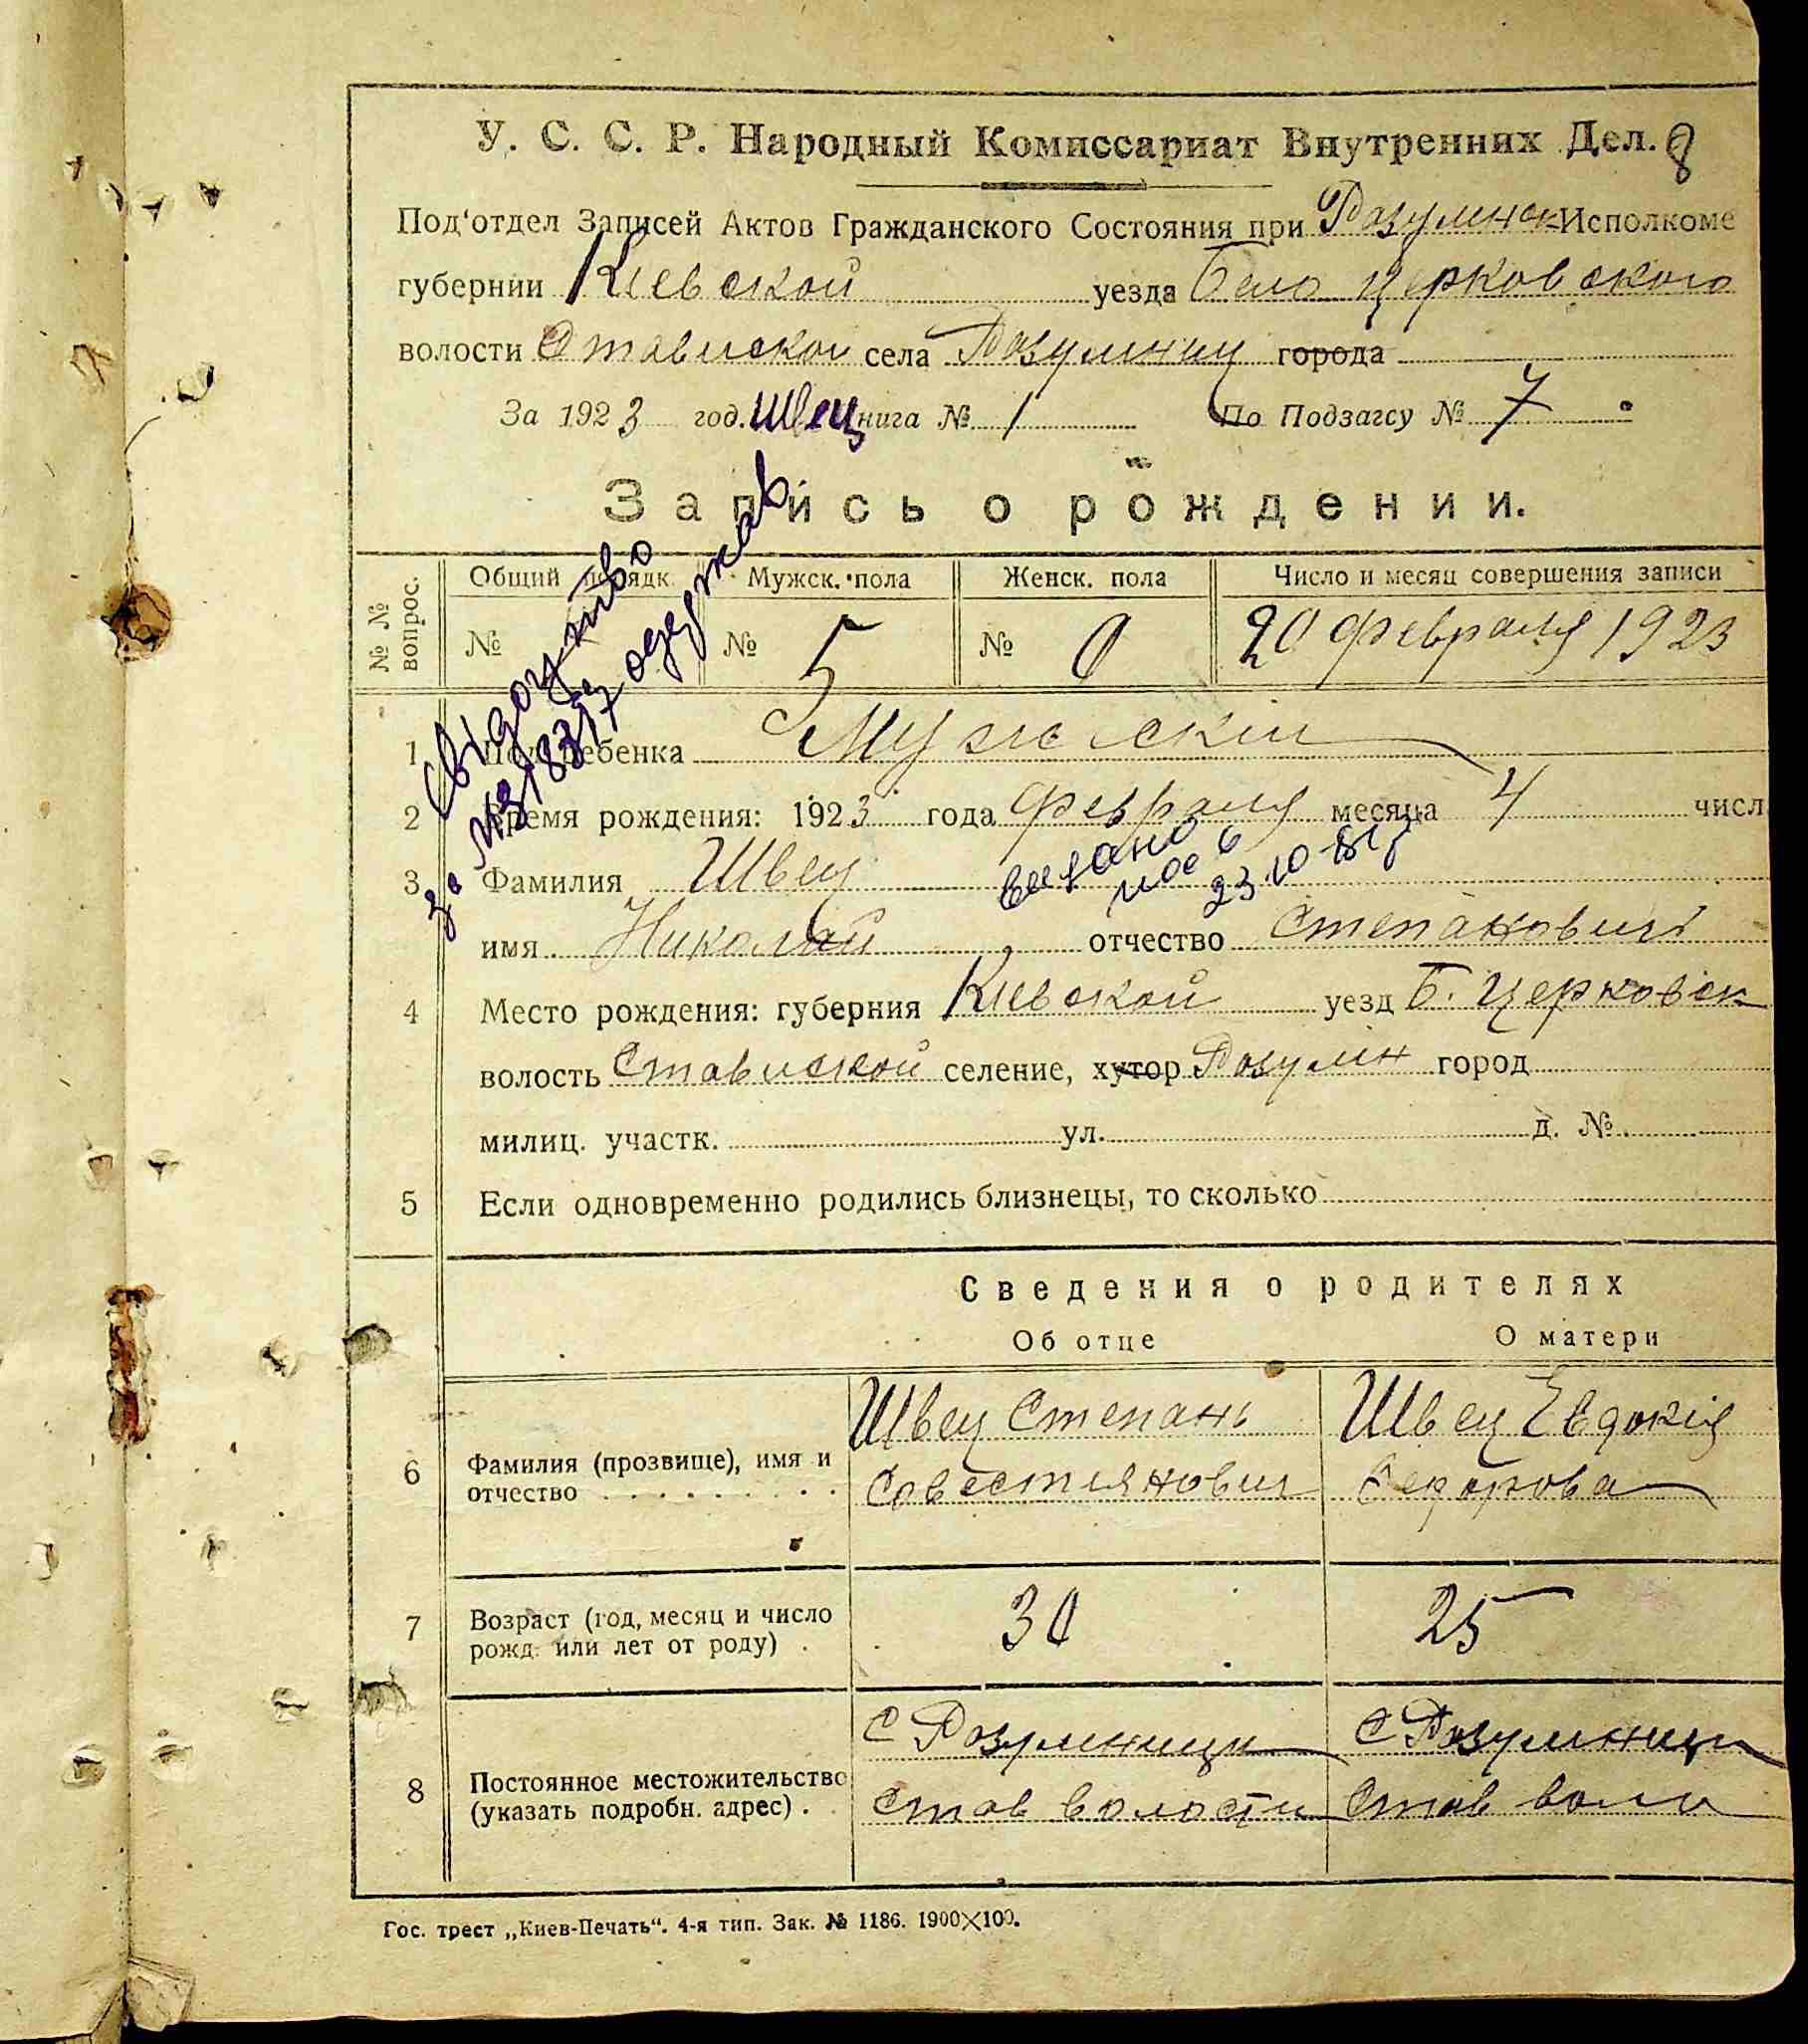 У. С. С. Р. Народный Комиссариат Внутренних Дел. 8
Под'отдел Записей Актов Гражданского Состояния при Розумнск Исполкоме
губернии Киевской уезда Бело церковского
волости Ставиской села Розумниц города
За 1923 год. Книга № 1 По Подзагсу № 7
Швец
Запись о рождении.
№ № вопрос. Общий порядк. Мужск. пола Женск. пола Число и месяц совершения записи
№ № 5 № 0 20 февраля 1923
Свідоцтво
одержав
1 Пол ребенка Мужескiй
2 Время рождения: 1923 года февраля месяца 4 числ
3 Фамилия Швец
выдано
23 10
имя Николай отчество Степановичъ
4 Место рождения: губерния Киевской уезд Б. Церковск
волость Ставиской селение, хутор Розумн город
милиц. участк. ул. д. №
5 Если одновременно родились близнецы, то сколько
Сведения о родителях
Об отце О матери
Швец Степанъ Швец Евдокiя
6 Фамилия (прозвище), имя и отчество Совестиянович Федорова
7 Возраст (год, месяц и число рожд. или лет от роду) 30 25
С Розумници С Розумници
8 Постоянное местожительство (указать подробн. адрес) Став волости Став воло
Гос. трест „Киев-Печать“. 4-я тип. Зак. № 1186. 1900×100.